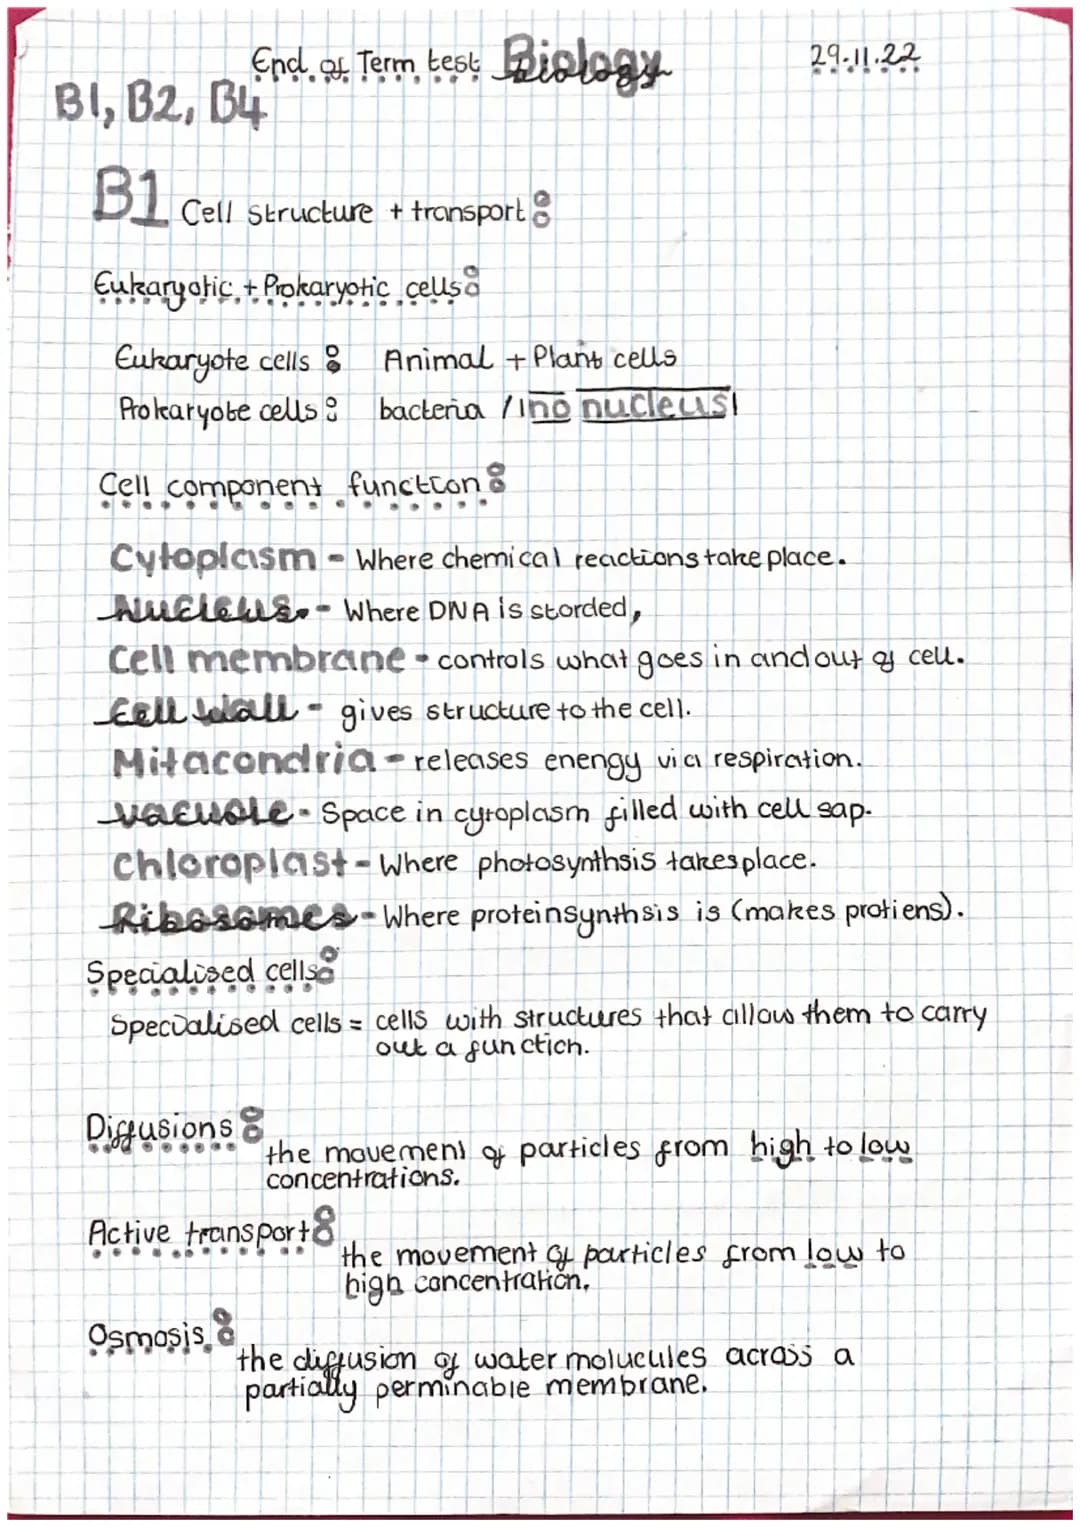 End of Term test Biology 29.11.22
B1, B2, B4
B1 Cell structure + transport:
Eukaryotic + Prokaryotic cells:
Eukaryote cells : Animal + Plant cells
Prokaryote cells : bacteria / no nucleus
Cell component function:
Cytoplasm - Where chemical reactions take place.
Nucleus - Where DNA is storded,
Cell membrane - controls what goes in and out of cell.
Cell wall - gives structure to the cell.
Mitacondria - releases enengy via respiration.
vacuole - Space in cytoplasm filled with cell sap.
chloroplast - Where photosynthsis takes place.
Ribosomes - Where protein synthsis is (makes protiens).
Specialised cells:
Specialised cells = cells with structures that allow them to carry
out a function.
Diffusions:
the movement of particles from high to low
concentrations.
Active transport:
the movement of particles from low to
high concentration.
Osmosis:
the diffusion of water molucules across a
partially perminable membrane.